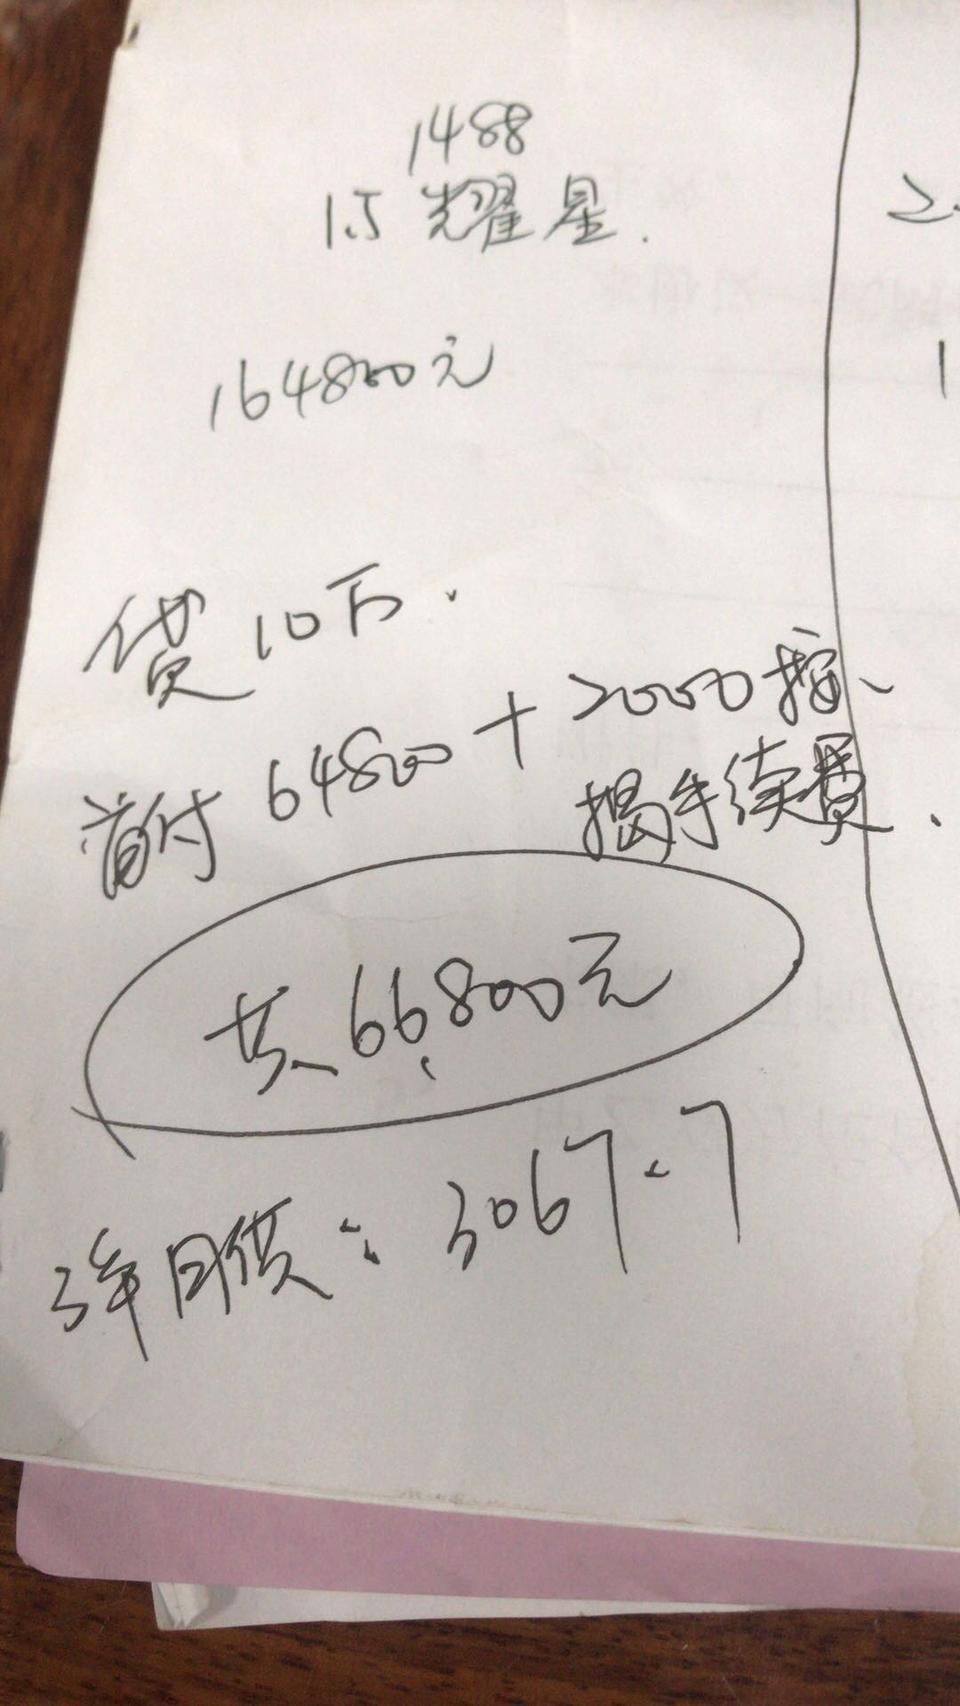 1488
1.5 耀星.
164800元
贷10万.
首付 64800 + 2000按、
揭手续费.
共66800元
3年月供：3067.7
2.
1